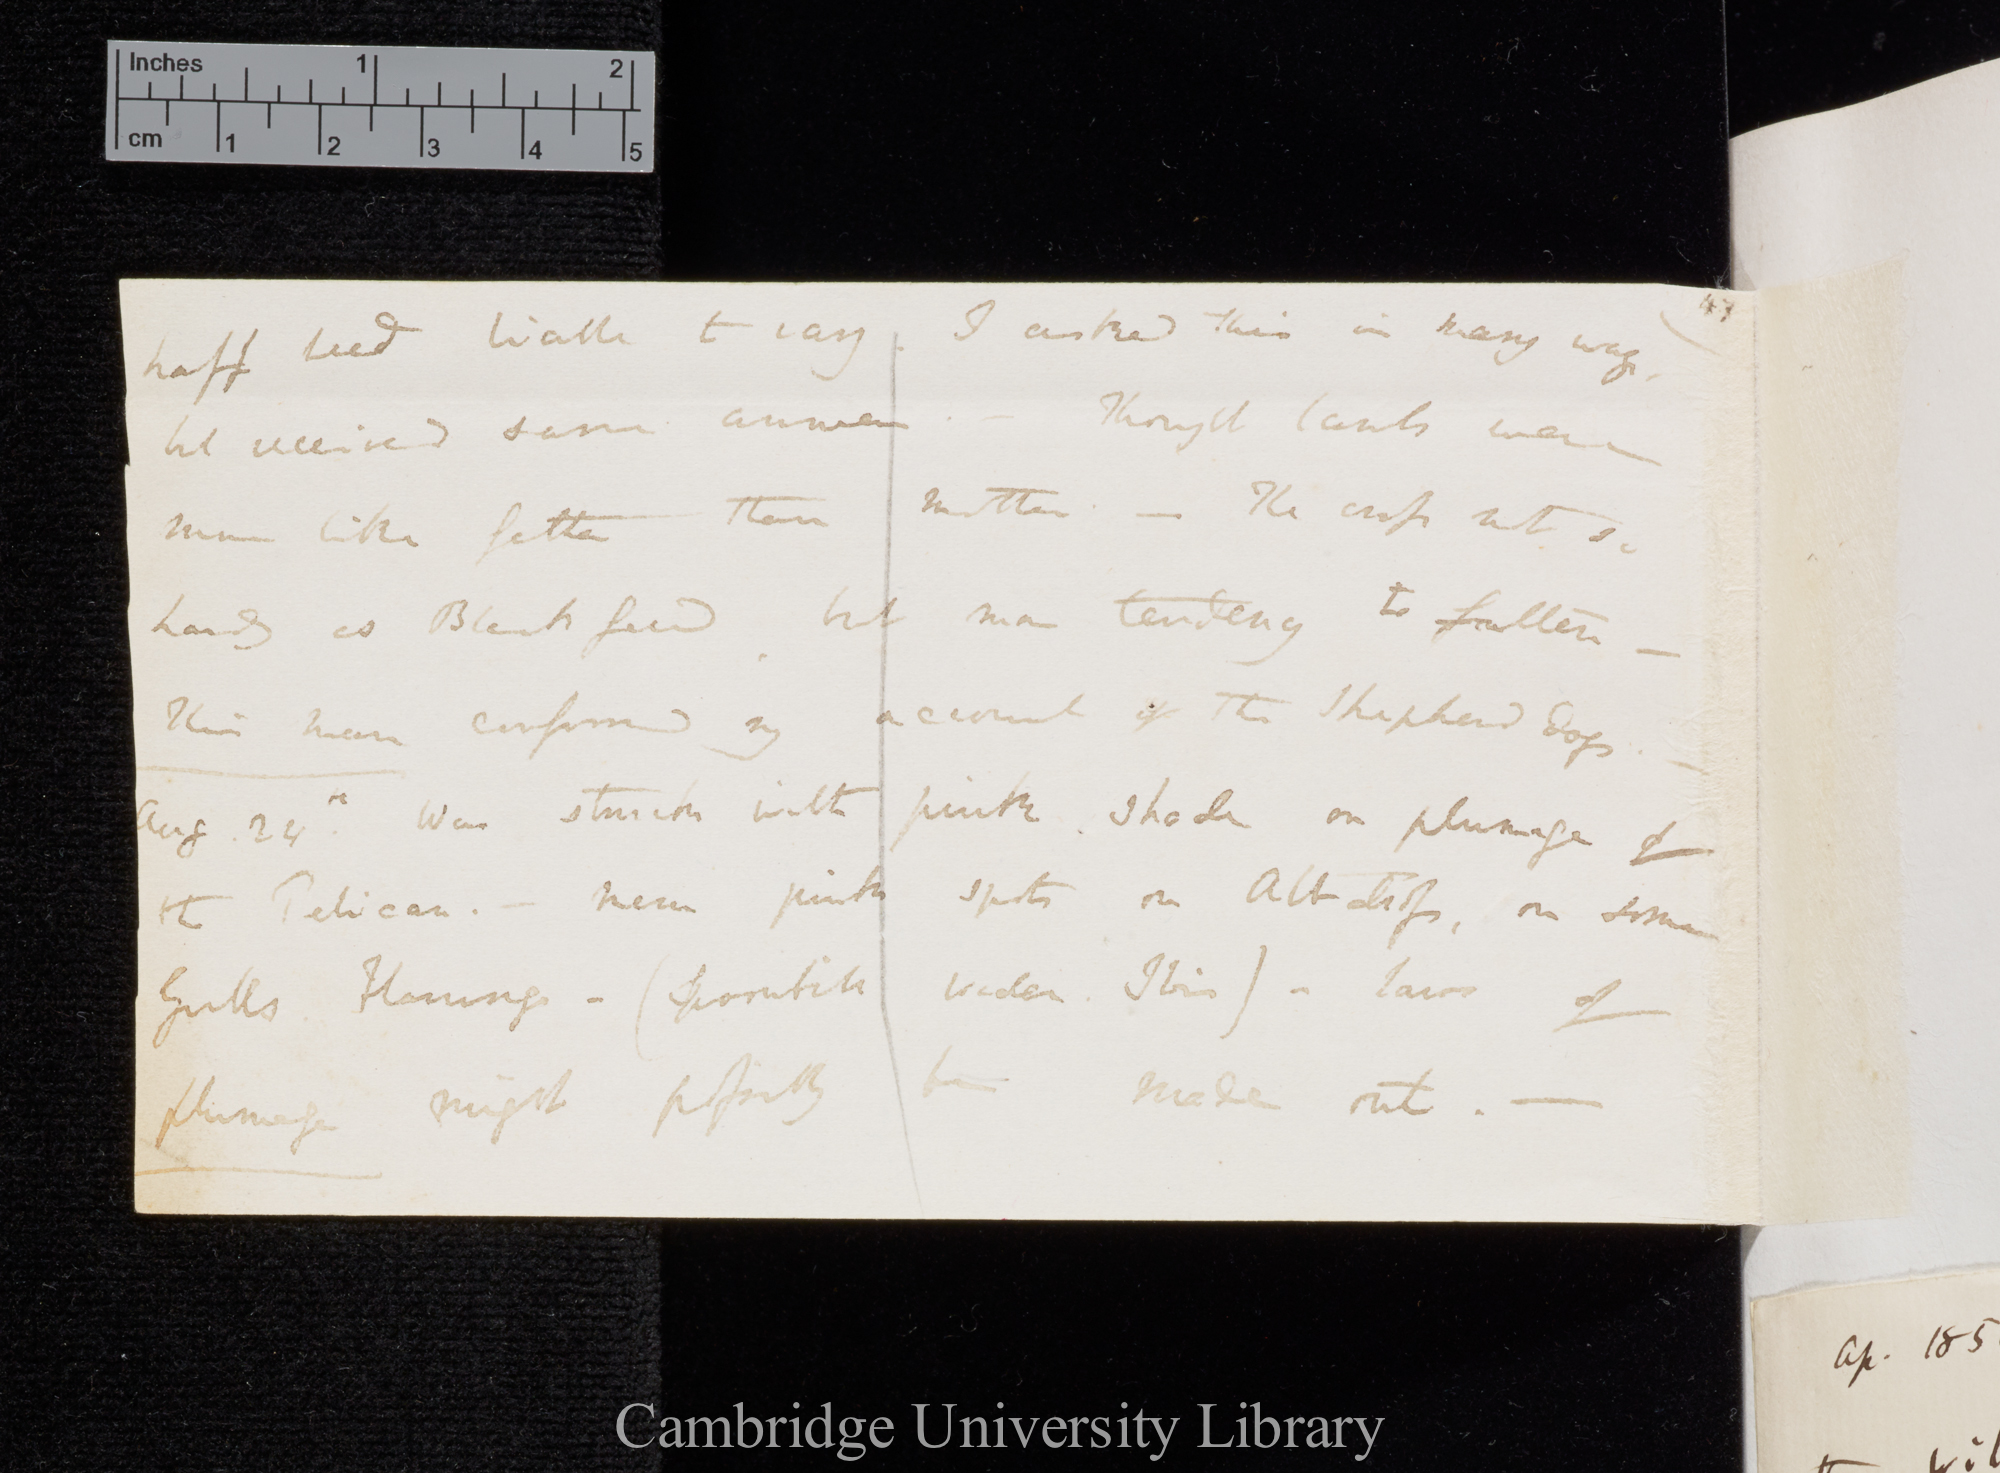 Inches 1 2
cm 1 2 3 4 5
47
half bred liable to vary. I asked this in many ways,
but received same answer. — Though lambs were
more like father than mother. — The cross not so
hardy as Blackfaced, but more tendency to fatten —
This man confirmed my account of the Shepherd dogs. —
Aug. 24th. Was struck with pink shade on plumage of
the Pelican. — mem pink spots on Albatross, on some
Gulls. Flamingo — (Spoonbill Ibis) — laws of
plumage might possibly be made out. —
Ap. 185
Cambridge University Library